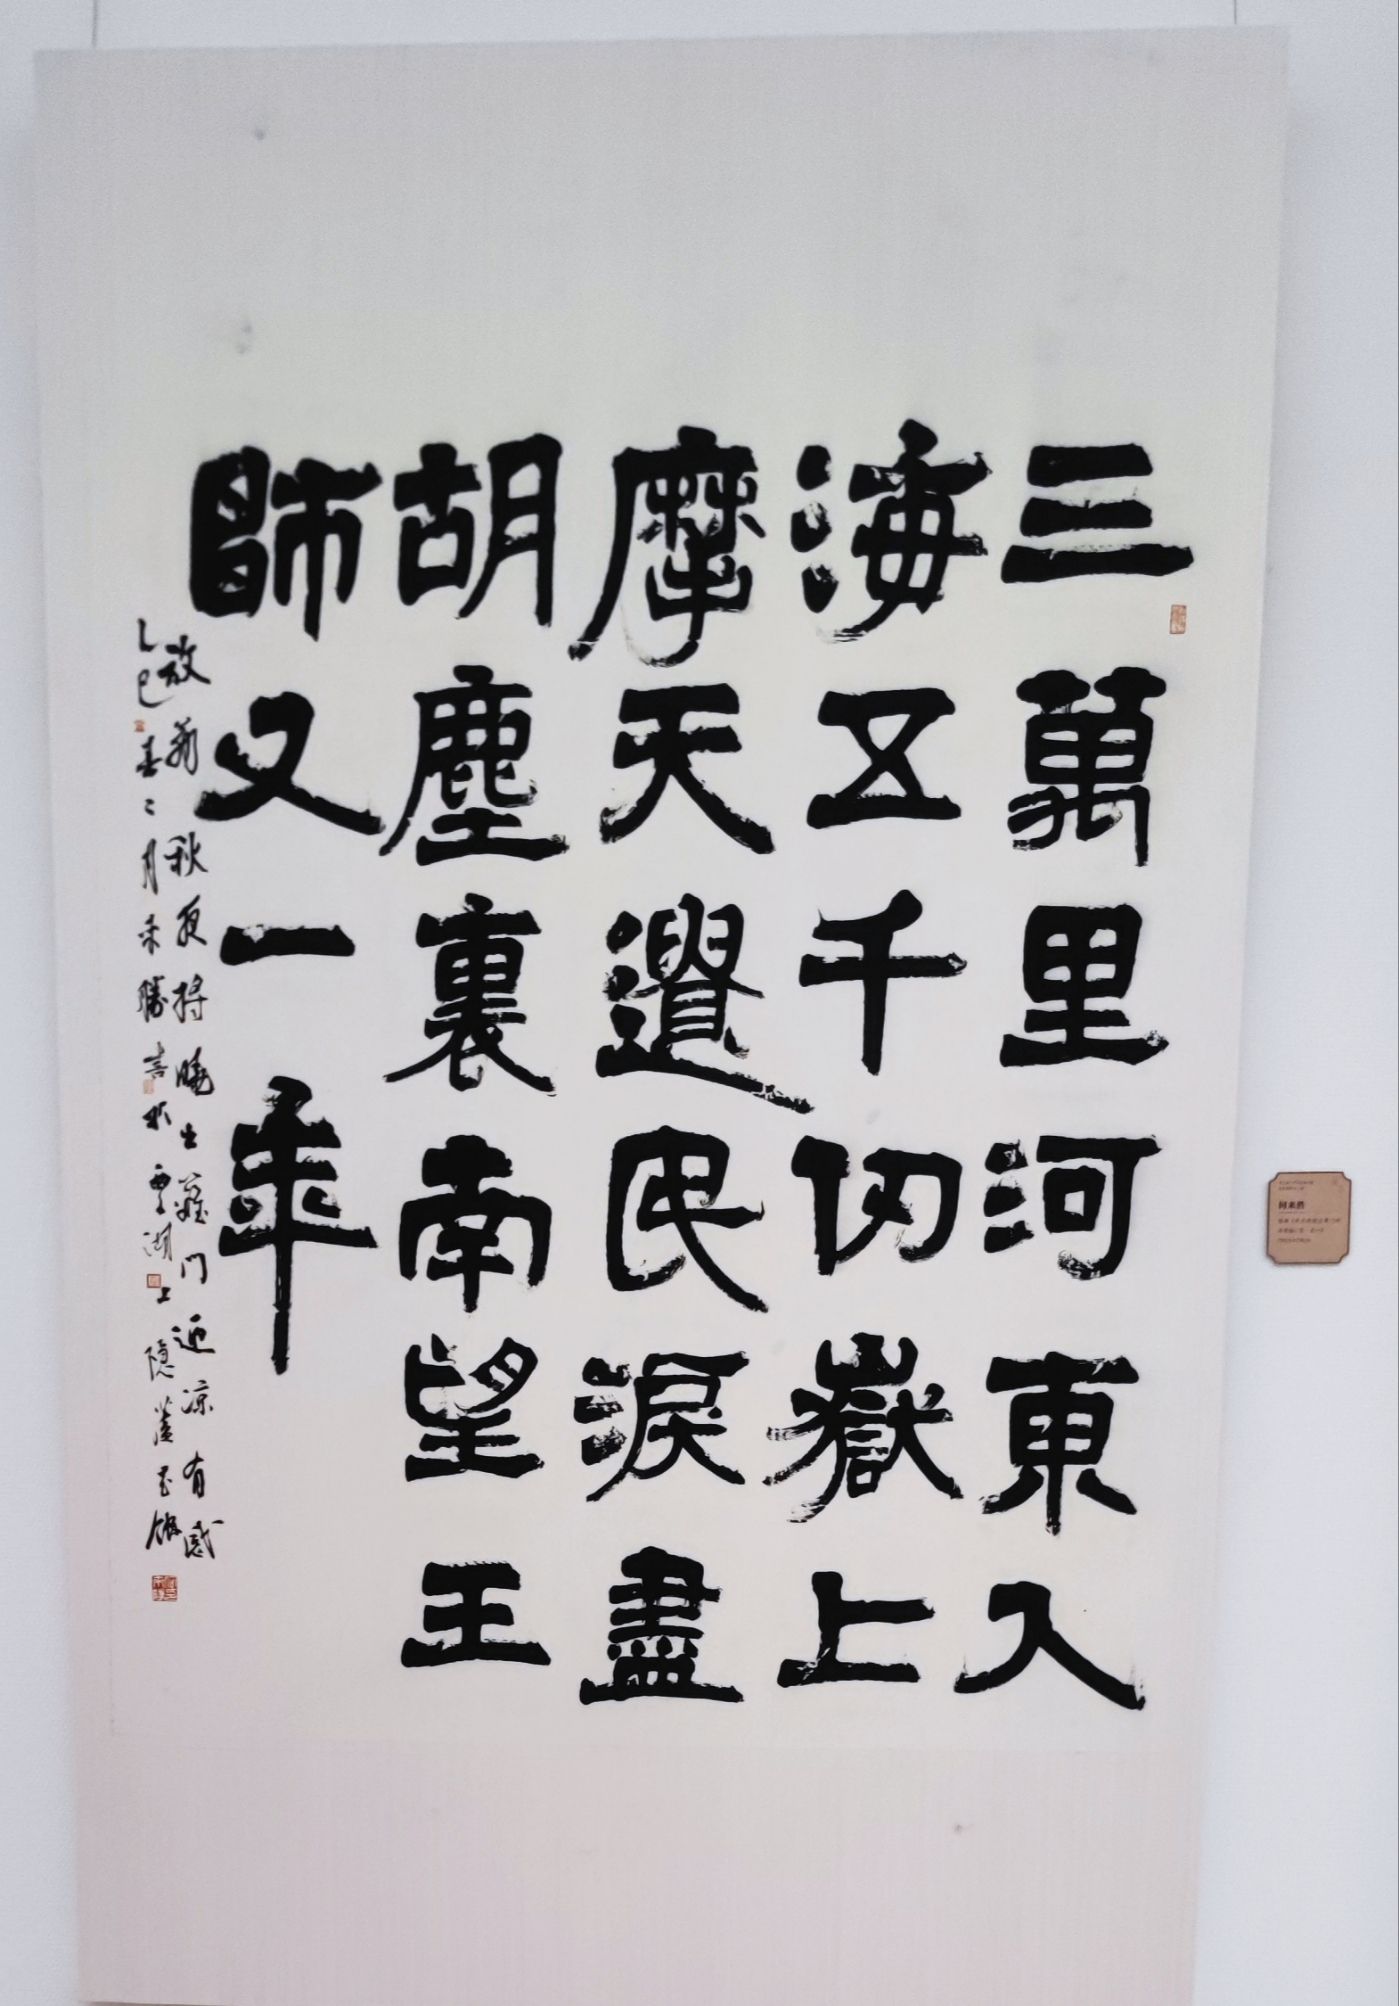 三萬里河東入
海五千仞嶽上
摩天遺民淚盡
胡塵裏南望王
師又一年
放翁秋夜將曉出籬門迎涼有感
乙巳春二月來勝喜於賈湖上隱蘆玉館